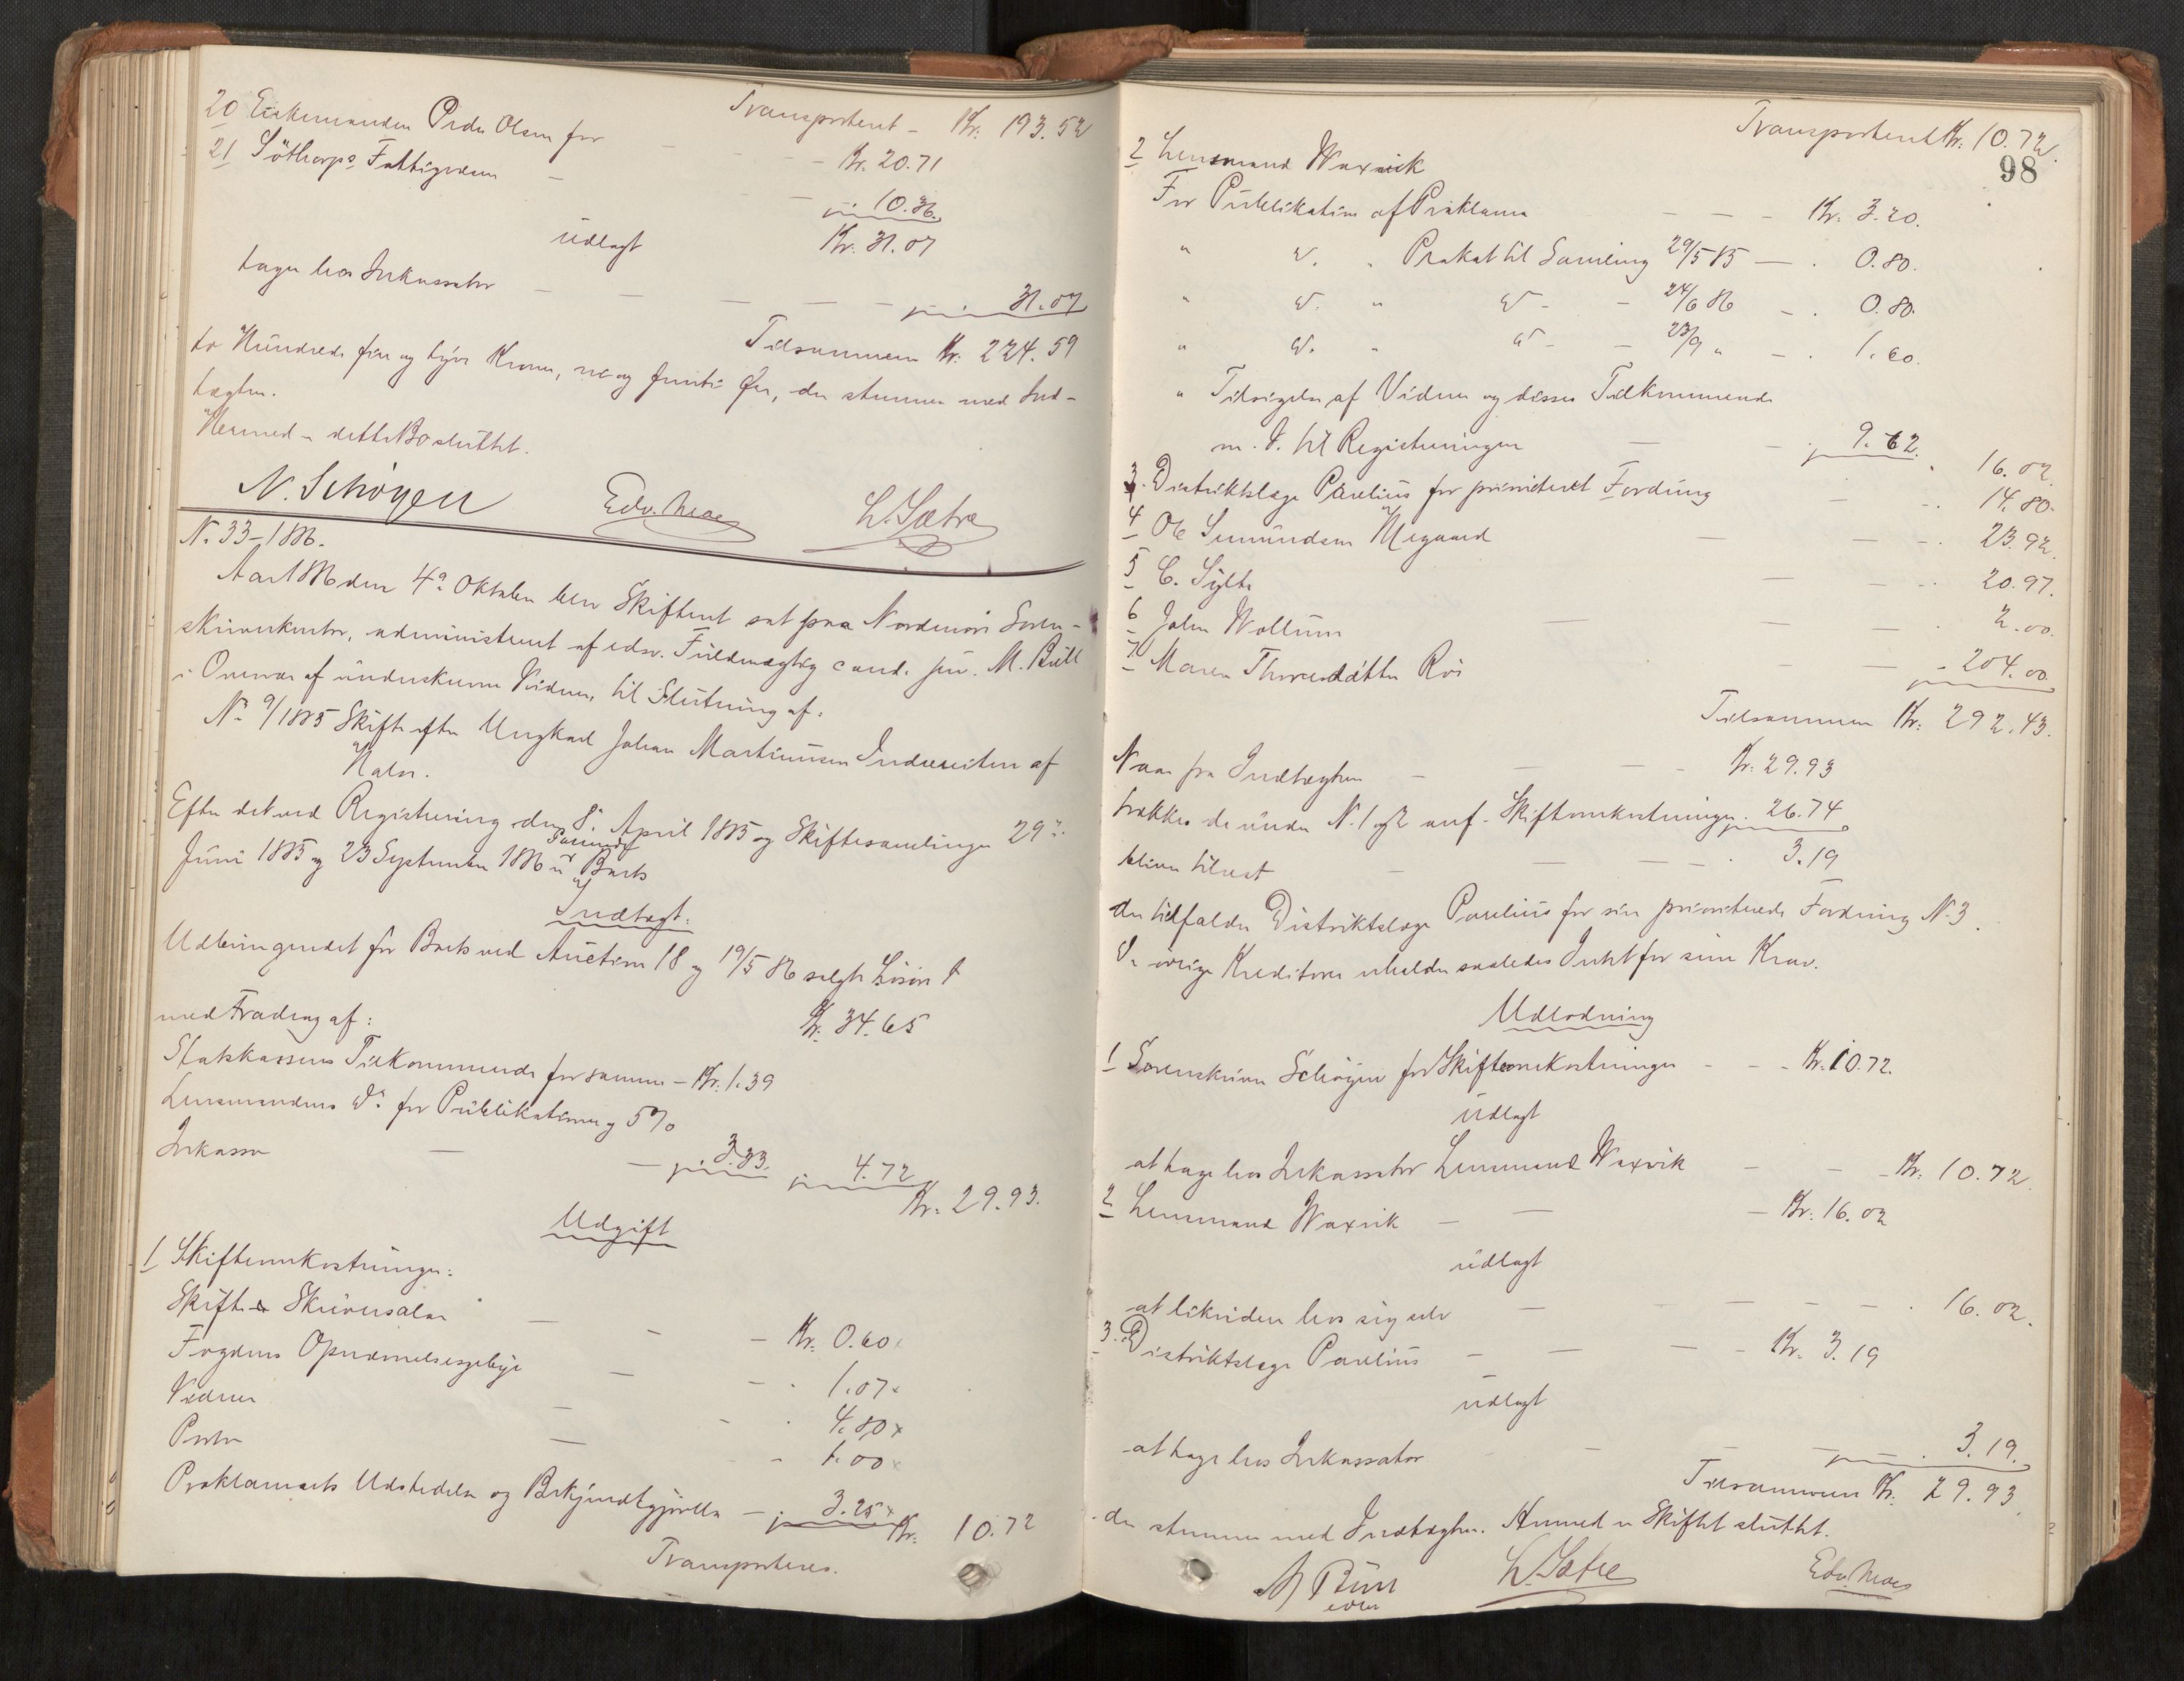 Transporteret - Kr. 193.52
20 Enkemanden Peder Olsen for - - - Kr. 20.71
21 Söthorps Fattigvæsen - - " 10.36
udlagt Kr. 31.07
tages hos Inkassator - - - - - " 31.07
Tilsammen Kr. 224.59
to Hundrede fire og tyve Kroner, ni og femti Øre, der stemmer med Ind-
tægten.
Hermed er dette Bo sluttet.
N. Schøyen Edv. Moe L. Sætre
N. 33-1886.
Aar 1886 den 4de Oktober blev Skifteret sat paa Nordmøre Soren-
skriverkontor, administreret af edsv. Fuldmægtig cand. jur. M. Bull
i Overvær af underskrevne Vidner, til Slutning af:
No 9/1885 Skifte efter Ungkarl Johan Martinusen Indreseiten af
Halsen.
Efter det ved Registrering den 8de April 1885 og Skiftesamlinger 29de
Juni 1885 og 23 September 1886 er Boets
Passerede
Indtægt:
Udbringendet for Boets ved Auction 18 og 19/5 86 solgte Løsøre
Kr. 34.65
med Fradrag af:
Statskassens Tilkommende for samme - Kr. 1.39
Lensmandens do for Publikation og 5%
Inkasso - - " 3.33. " 4.72
Kr. 29.93.
Udgift
1 Skifteomkostninger:
Skifte Skriversalær - - - Kr. 0.60
Fogdens Opnævnelsesgebyr - - " 1.07
Vidner - - " 4.80
Porto - - " 1.00
Proklamaets Udstedelse og Bekjendtgjørelse - " 3.25 Kr. 10.72
Transporteres.
Transporteret Kr. 10.72.
98
2 Lensmand Waxvik
For Publikation af Proklama - - - Kr. 3.20.
" D. " Plakat til Samling 29/5 85 - . 0.80.
" D. " D - - 24/6 86 - . 0.80.
" D. " D - - 23/9 " - . 1.60.
" Tilsigelse af Vidner og disses Tilkommende
m. V. til Registreringen - - " 9.62. . 16.02.
3. Distriktslæge Parelius for prioriteret Fordring - - . 14.80.
4 Ole Semundsen Megaard - - - . 23.92.
5 C. Sylte - - - . 20.97.
6 John Wollum - - - . 2.00.
7 Maren Thoresdatter Rös - - - 204.00.
Tilsammen Kr. 292.43.
Naar fra Indtægten - - - Kr. 29.93
trækkes de under N. 1 og 2 anf. Skifteomkostninger " 26.74
bliver tilrest - - - . 3.19
der tilfalder Distriktslæge Parelius for sin prioriterede Fordring N. 3.
De øvrige Kreditorer erholder saaledes Intet for sine Krav.
Udlodning
1 Sorenskriver Schøyen for Skifteomkostninger - - - Kr. 10.72.
udlagt
at tage hos Inkassator Lensmand Waxvik - - - Kr. 10.72.
2 Lensmand Waxvik - - - Kr. 16.02
udlagt
at likvidere hos sig selv - - - - . 16.02.
3. Distriktslæge Parelius - - - - Kr. 3.19
udlagt
at tage hos Inkassator - - - - . 3.19.
Tilsammen Kr. 29.93.
der stemmer med Indtægten. Hermed er Skiftet sluttet.
M Bull L. Sætre Edv. Moe
edsv